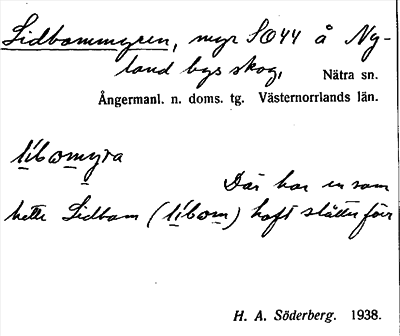 Lidbommyren, myr SO44 å Ny-
land bys skog, Nätra sn.
Ångermanl. n. doms. tg. Västernorrlands län.
líbomyra
Där har en som
hette Lidbom (líbom) haft slåtter förr
H. A. Söderberg. 1938.